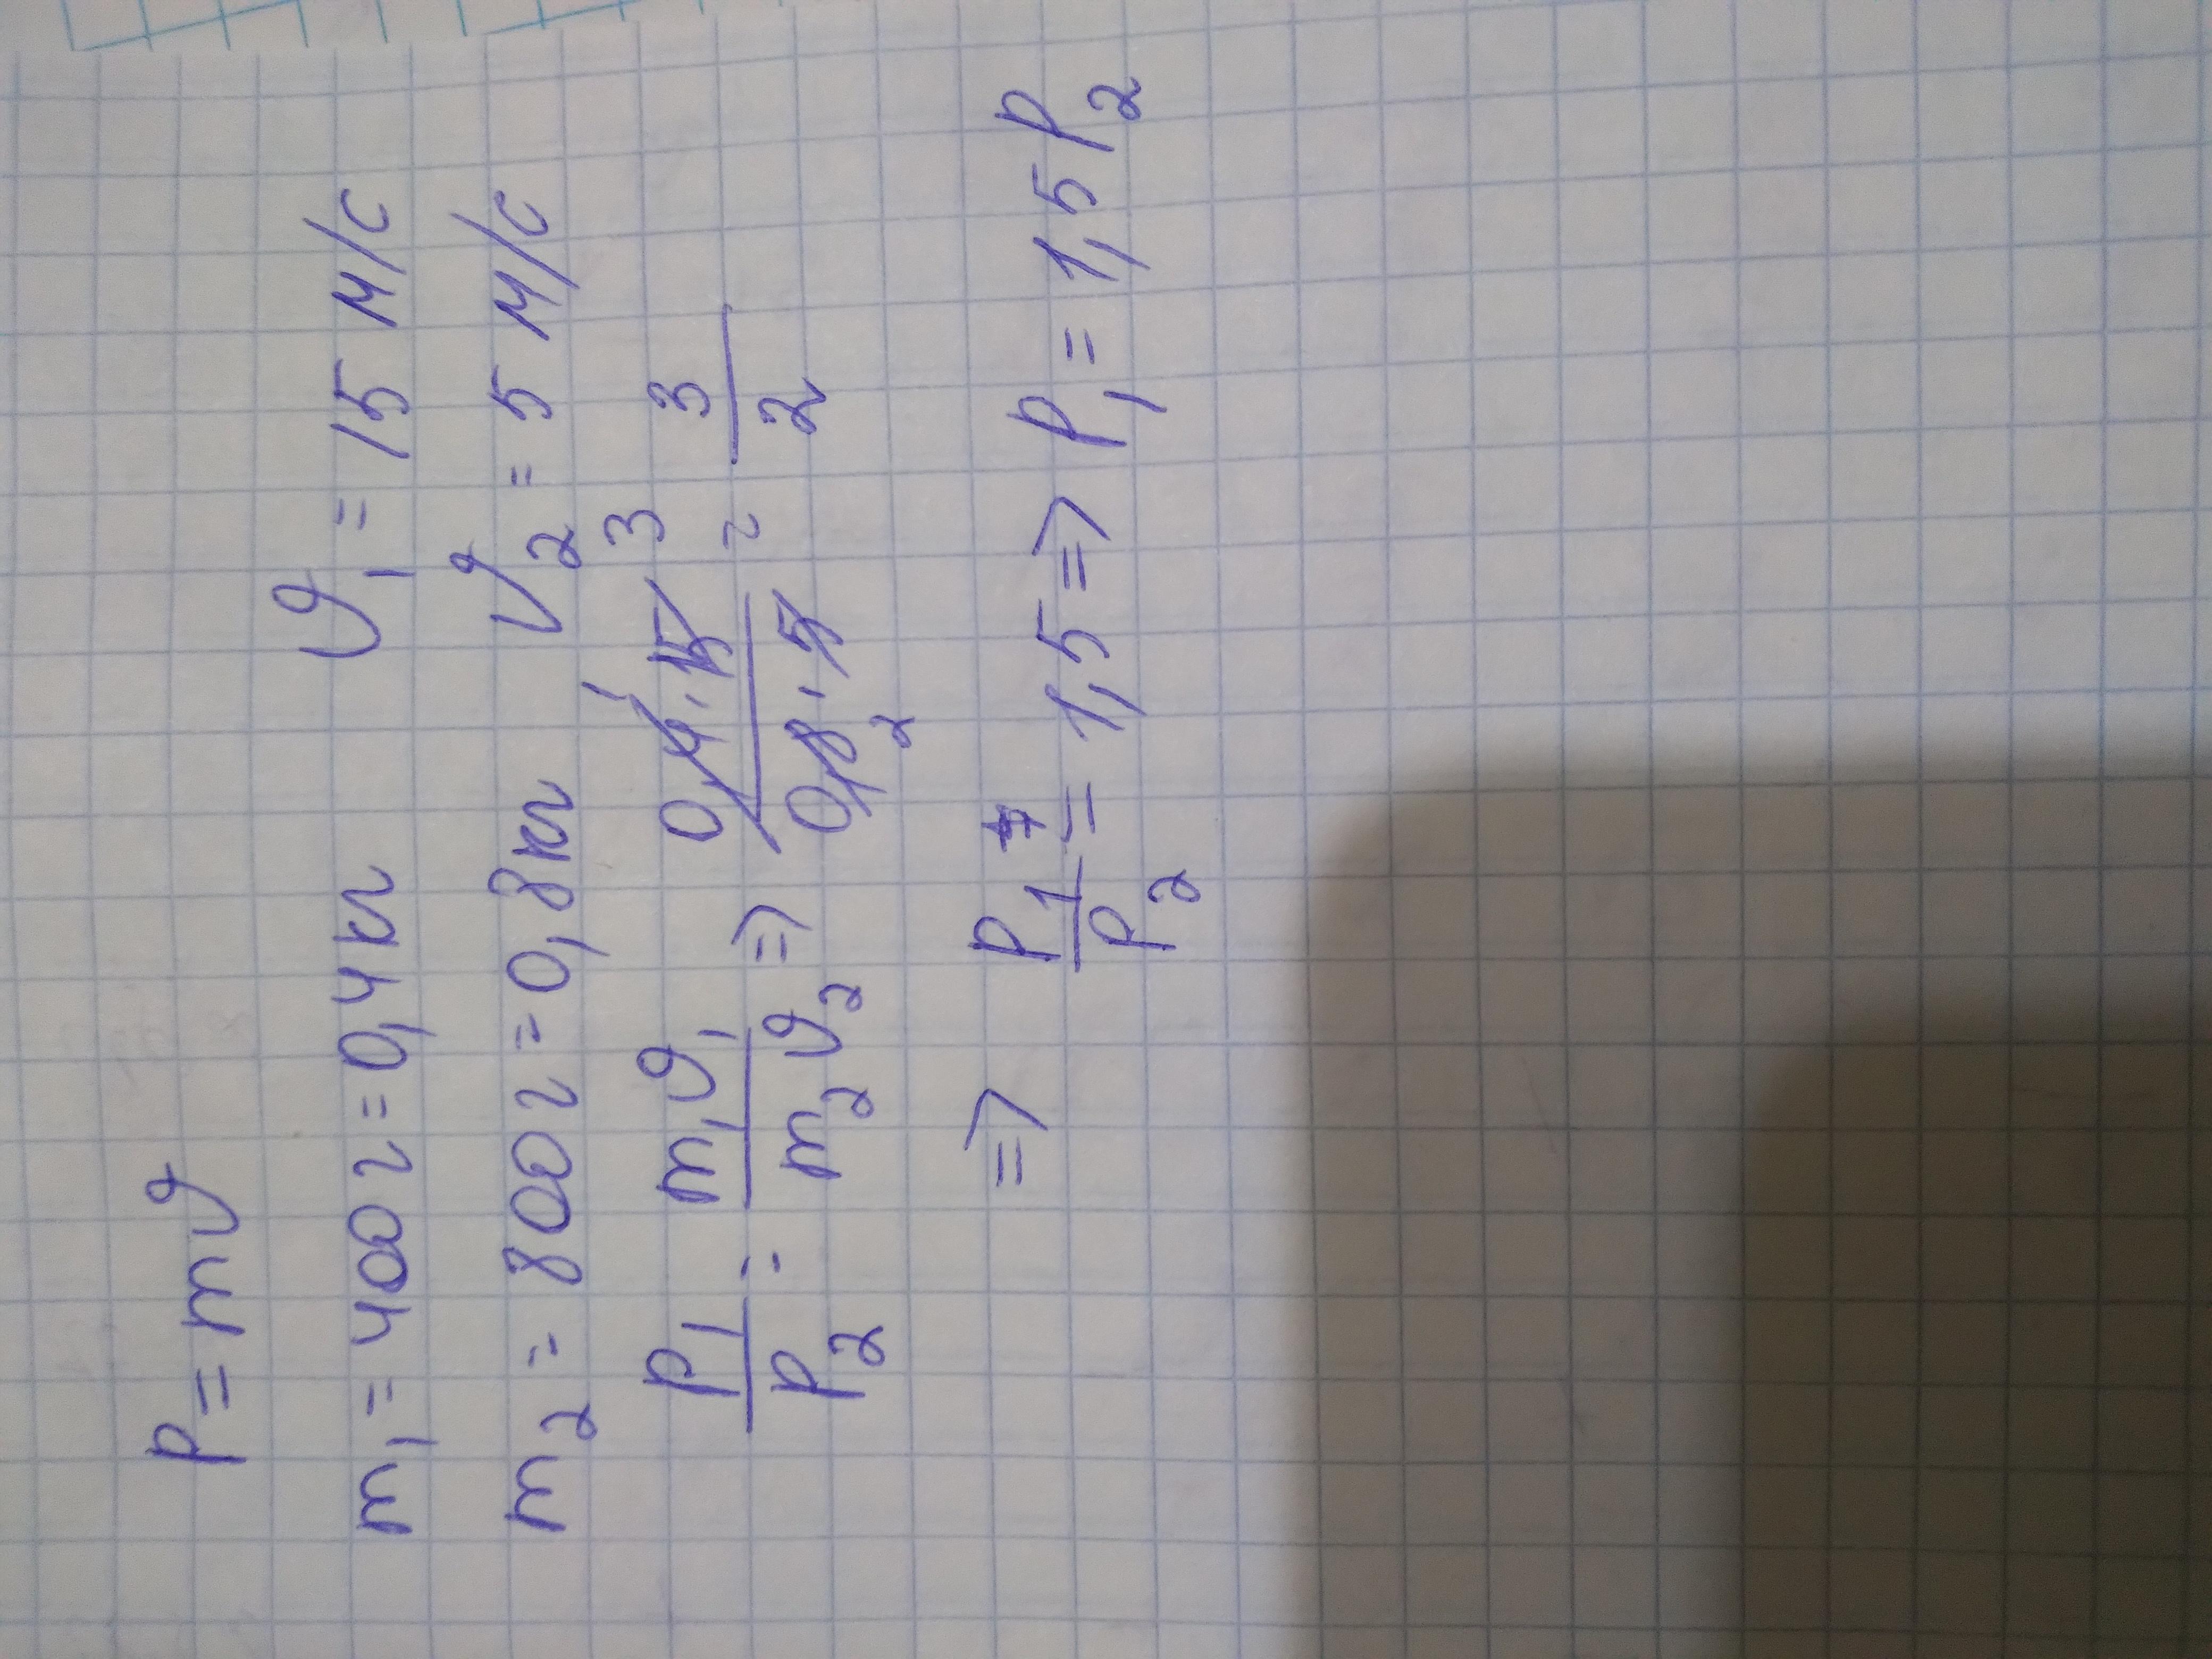 p = mϑ
m₁ = 400 г = 0,4 кг ϑ₁ = 15 м/с
m₂ = 800 г = 0,8 кг ϑ₂ = 5 м/с
p₁/p₂ = m₁ϑ₁/m₂ϑ₂ => 0,4·15/0,8·5 = 3/2
=> p₁/p₂ = 1,5 => p₁ = 1,5 p₂